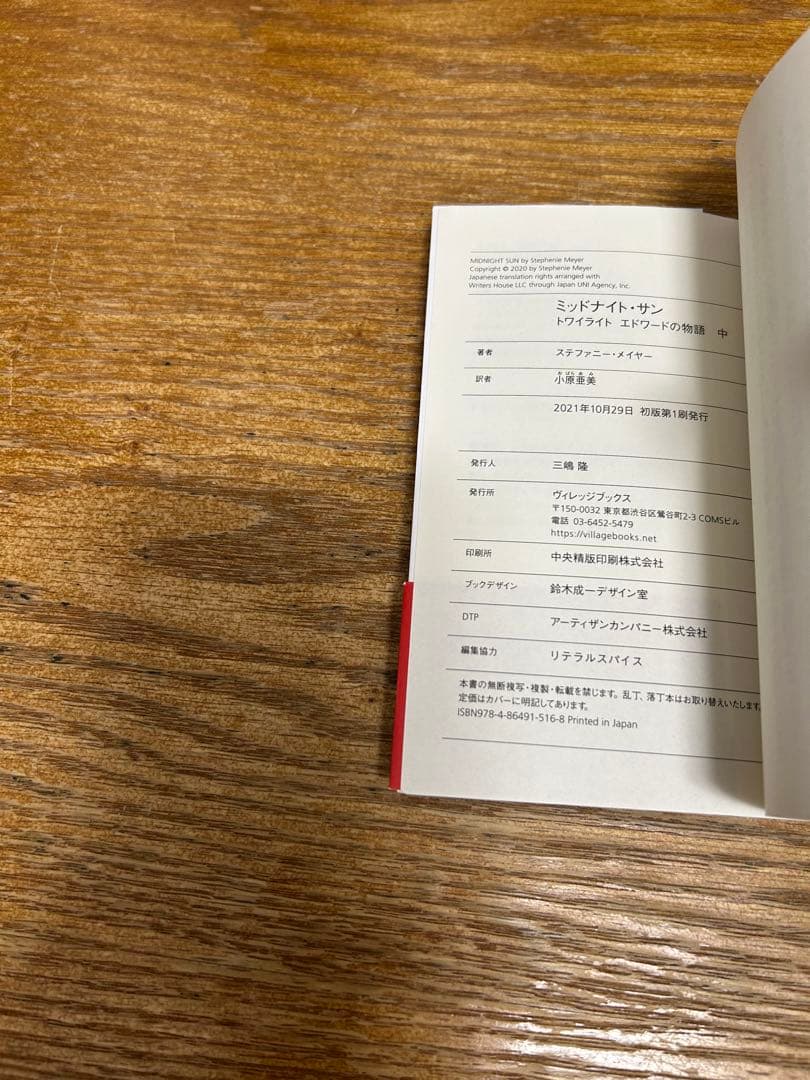 MIDNIGHT SUN by Stephenie Meyer
Copyright © 2020 by Stephenie Meyer
Japanese translation rights arranged with
Writers House LLC through Japan UNI Agency, Inc.
ミッドナイト・サン
トワイライト エドワードの物語 中
著者 ステファニー・メイヤー
おばらあみ
訳者 小原亜美
2021年10月29日 初版第1刷発行
発行人 三嶋 隆
発行所 ヴィレッジブックス
〒150-0032 東京都渋谷区鶯谷町2-3 COMSビル
電話 03-6452-5479
https://villagebooks.net
印刷所 中央精版印刷株式会社
ブックデザイン 鈴木成一デザイン室
DTP アーティザンカンパニー株式会社
編集協力 リテラルスパイス
本書の無断複写・複製・転載を禁じます。乱丁、落丁本はお取り替えいたします。
定価はカバーに明記してあります。
ISBN978-4-86491-516-8 Printed in Japan